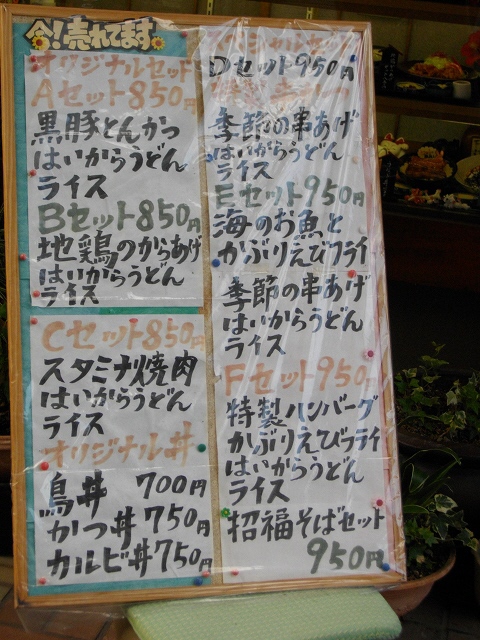 今!売れてます
オリジナルセット
Aセット850円
黒豚とんかつ
はいからうどん
ライス
Bセット850円
地鶏のからあげ
はいからうどん
ライス
Cセット850円
スタミナ焼肉
はいからうどん
ライス
オリジナル丼
鳥丼 700円
かつ丼 750円
カルビ丼 750円
Dセット950円
季節の串あげ
はいからうどん
ライス
Eセット950円
海のお魚と
かぶりえびフライ
季節の串あげ
はいからうどん
ライス
Fセット950円
特製ハンバーグ
かぶりえびフライ
はいからうどん
ライス
招福そばセット
950円